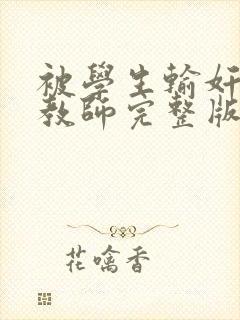 被學生輪奸
教師完整版
花噙香